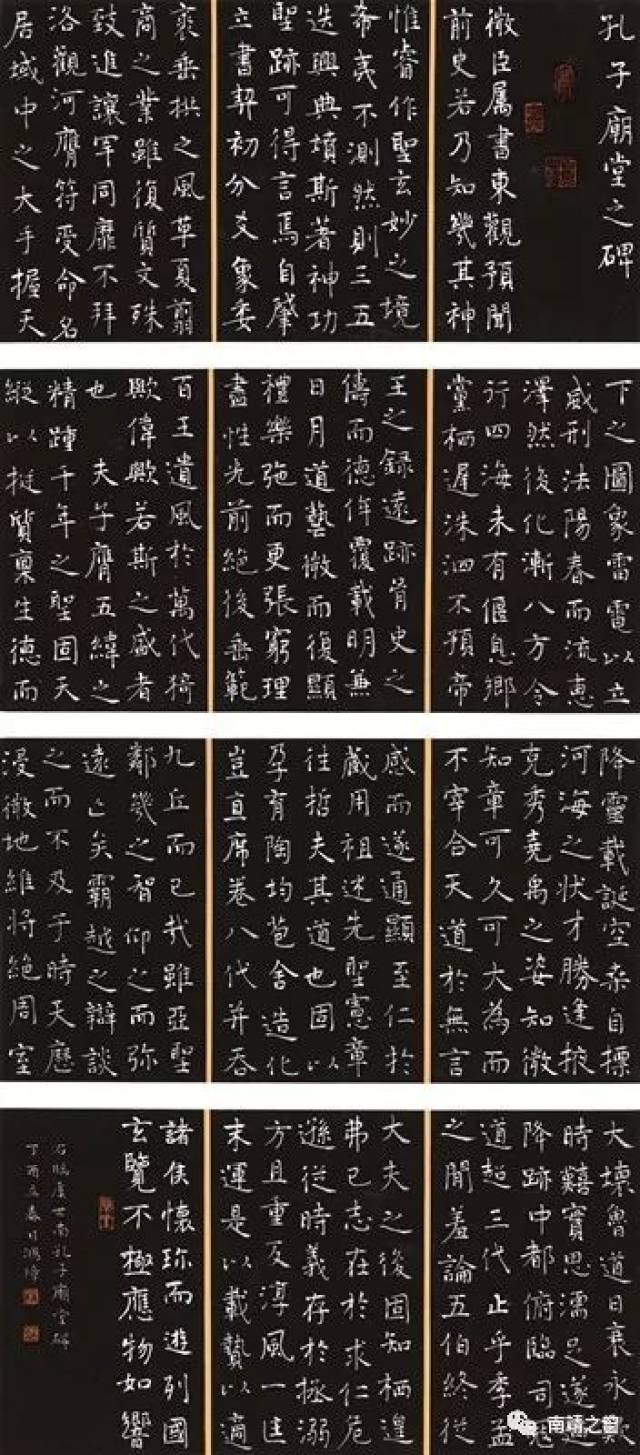 孔子廟堂之碑
微臣属書東觀預聞
前史若乃知幾其神
惟睿作聖玄妙之境
希夷不測然則三五
迭興典墳斯著神功
聖跡可得言焉自肇
立書契初分爻象委
裘垂拱之風革夏翦
商之業雖復質文殊
致進讓罕同靡不拜
洛觀河膺符受命名
居域中之大手握天
下之圖象雷電以立
威刑法陽春而流惠
澤然後化漸八方令
行四海未有偃息鄉
黨栖遲洙泗不預帝
王之録遠跡胥史之
儔而德侔覆載明無
日月道藝微而復顯
禮樂弛而更張窮理
盡性光前絕後垂範
百王遺風於萬代猗
歟偉歟若斯之盛者
也 夫子膺五緯之
精踵千年之聖固天
縱以挺質稟生德而
降靈載誕空桑自摽
河海之狀才勝逢掖
克秀堯禹之姿知微
知章可久可大為而
不宰合天道於無言
感而遂通顯至仁於
藏用祖述先聖憲章
往哲夫其道也固以
孕育陶均苞含造化
豈直席卷八代并吞
九丘而已哉雖亞聖
鄰幾之智仰之而弥
遠亡吳霸越之辯談
之而不及于時天歷
浸微地維將絕周室
大壞魯道日衰永
時艱實思濡足遂
降跡中都俯臨司
道超三代止乎季孟
之間羞論五伯終從
大夫之後固知栖遑
弗已志在於求仁危
遜從時義存於拯溺
方且重反淳風一匡
末運是以載贄以適
諸侯懷珍而遊列國
玄覽不極應物如響
右臨虞世南孔子廟堂碑
丁酉立春日鴻
南靖之窗